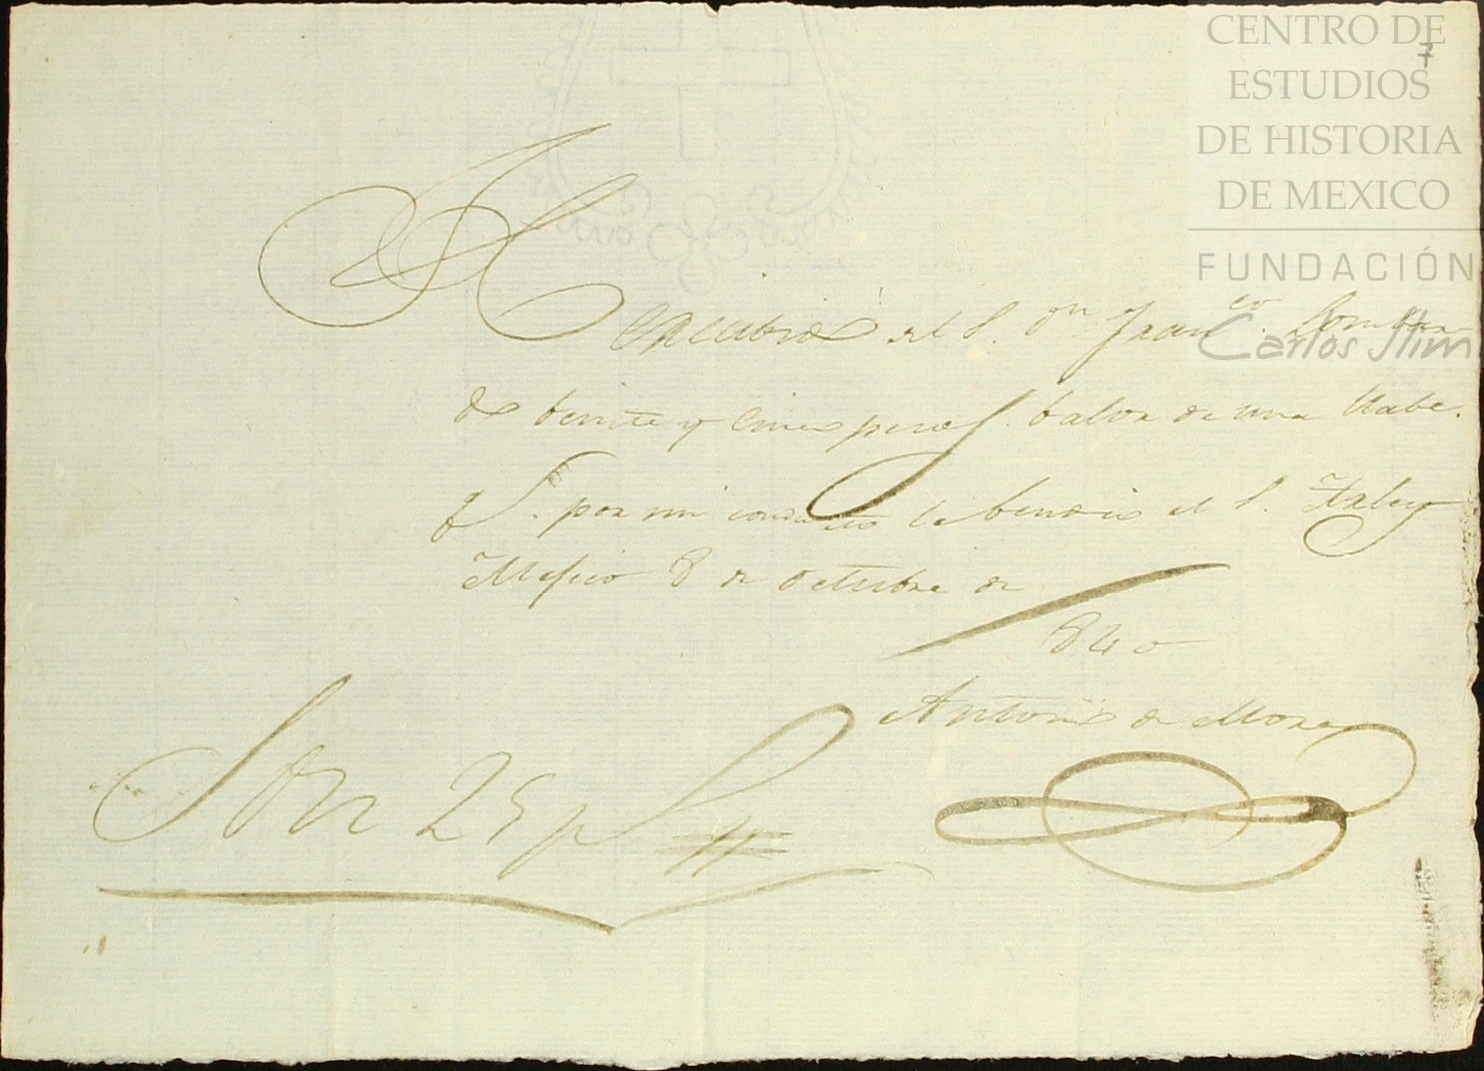 CENTRO DE
ESTUDIOS
DE HISTORIA
DE MEXICO
FUNDACIÓN
Carlos Slim
7
del S. Dn Franco.
de beinte y Cinco pesos balor de una
qe. por mi conducto le bendió el S.
Mejico 8 de Octubre de
840
Antonio de Mora
Son 25 ps